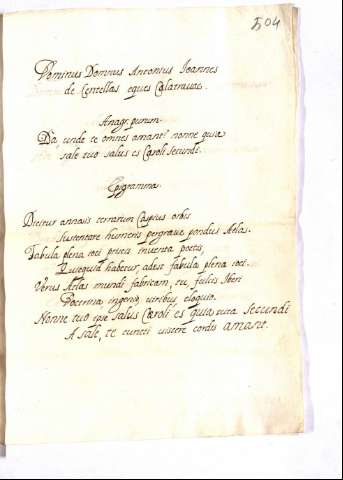 504
Dominus Domnus Antonius Joannes
de Centellas eques Calatravae.
Anagr. purum.
Da unde te omnes amant? nonne quia
sale tuo salus es Caroli Secundi.
Epigramma
Dicetur annosis terrarum orbis
Sustentare humeris pergrave pondus Atlas.
Fabula plena ioci prisci inventa poetis,
Quicquid habetur, adest fabula plena ioci.
Verus Atlas mundi fabricam, tu, fulcis Iberi
ingenio, viribus, eloquio.
Nonne tuo ipse salus Caroli es quia vita secundi
A sale, te cuncti viscere cordis amant.